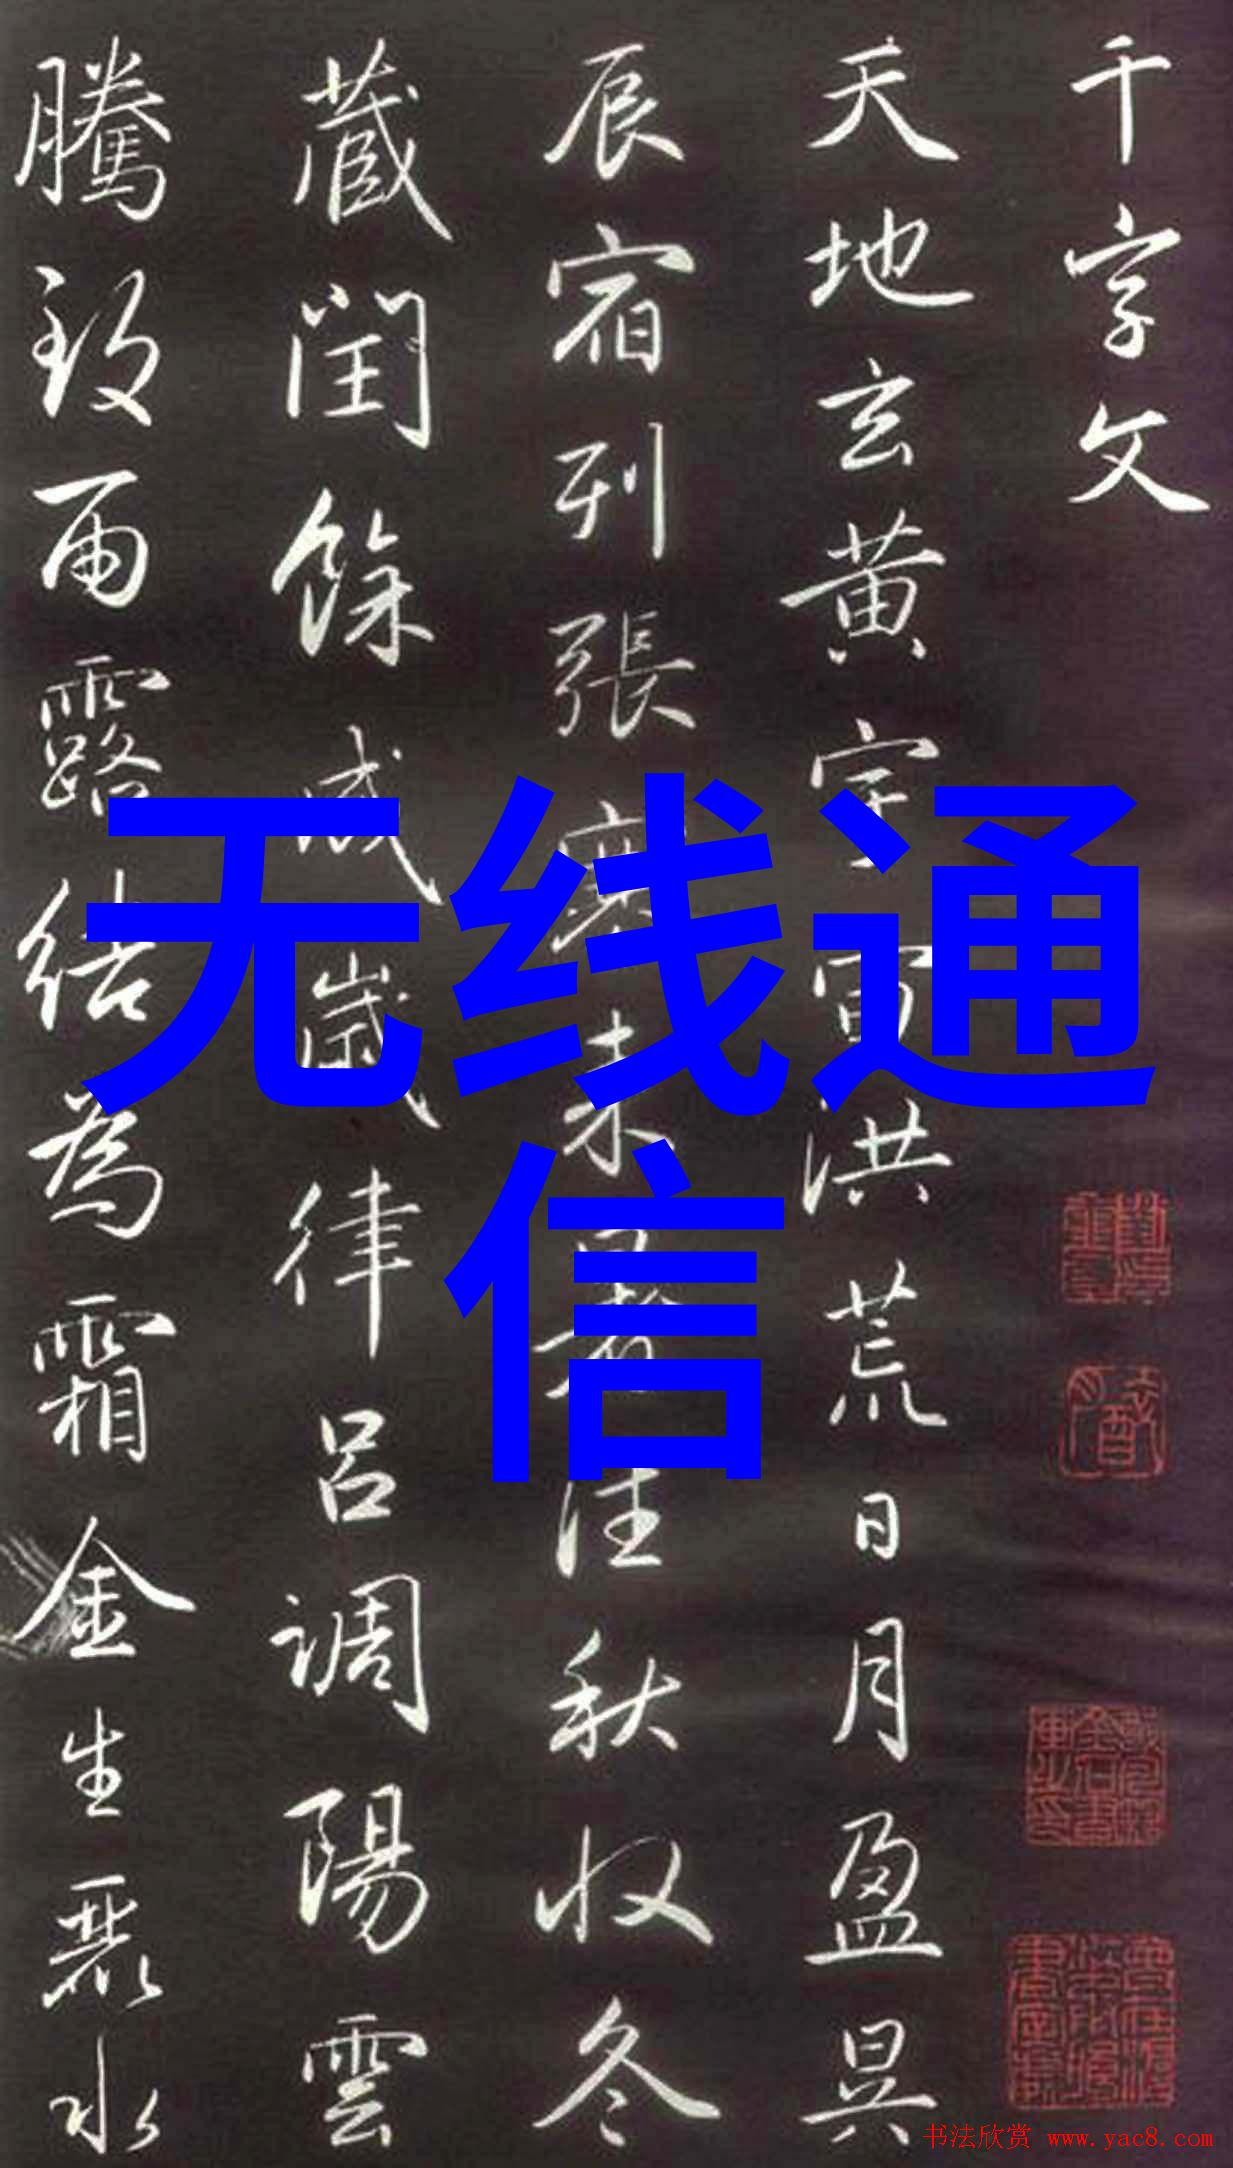 千字文
天地玄黄宇宙洪荒日月盈昃
辰宿列張寒来暑往秋収冬
藏閏餘成歲律吕調陽雲
騰致雨露結為霜金生麗水
无线通
信
书法欣赏 www.yac8.com